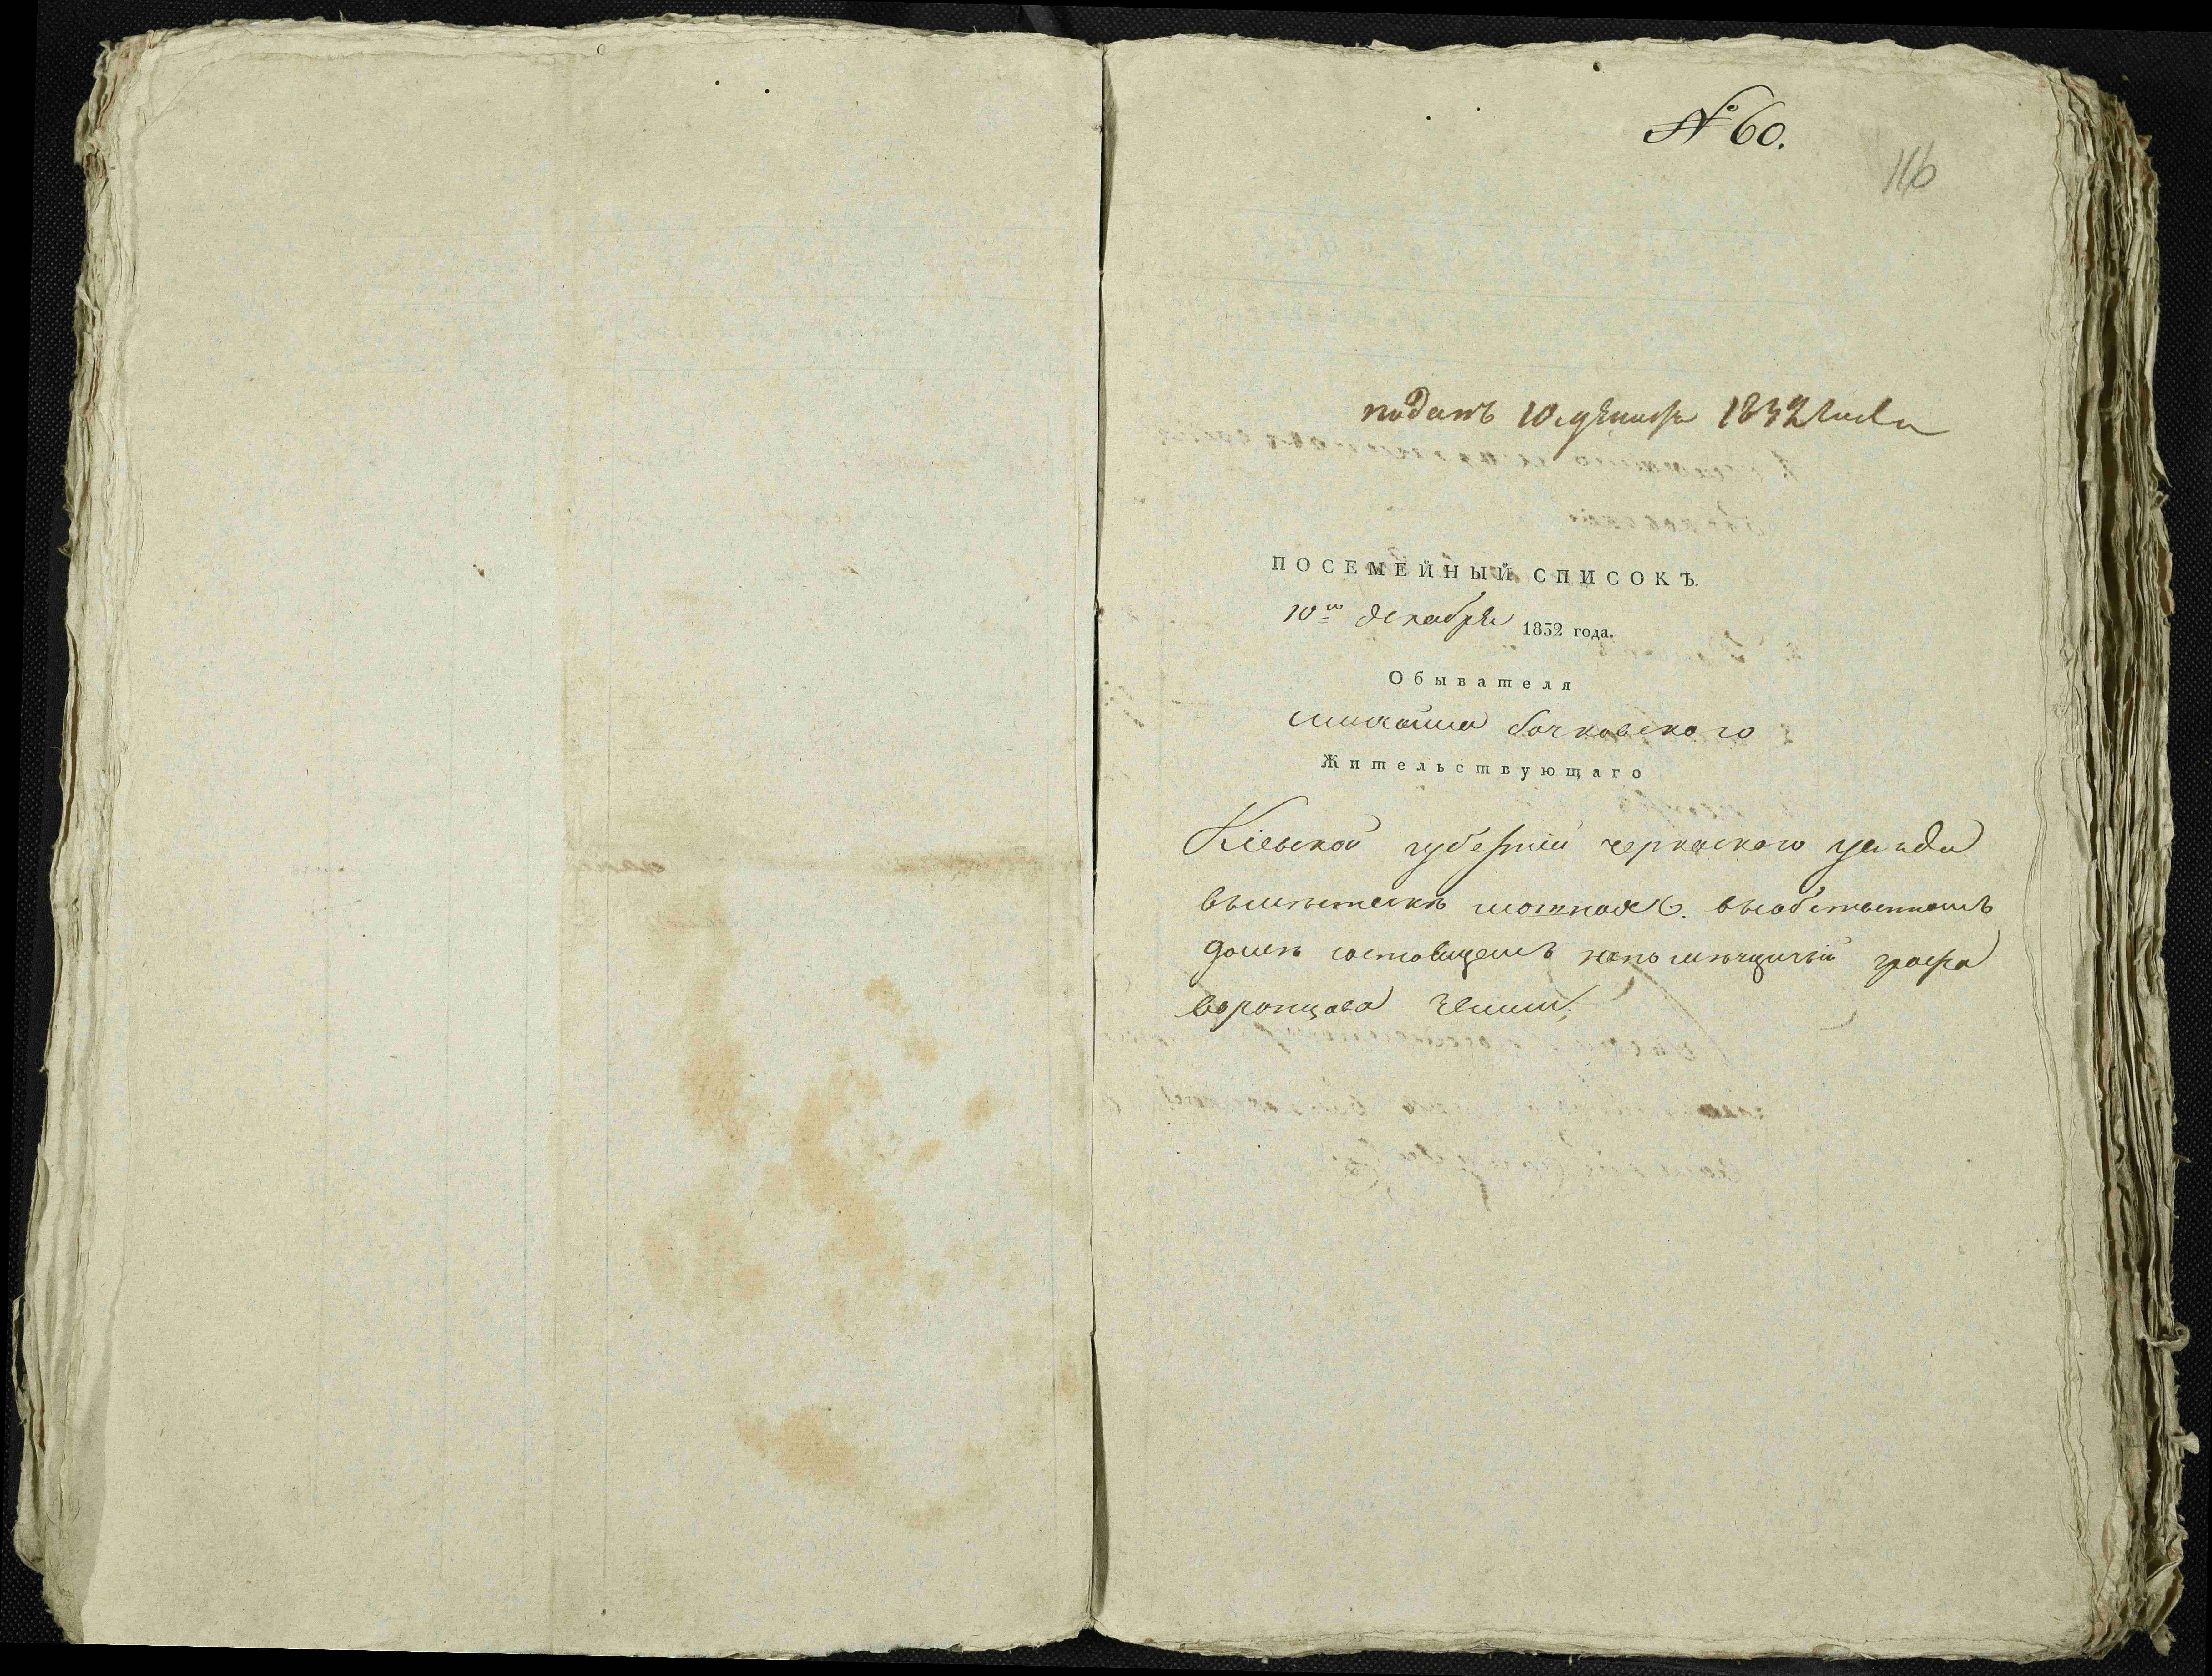 № 60.
116
поданъ 10 декабря 1832 года
ПОСЕМЕЙНЫЙ СПИСОКЪ.
10го декабря 1832 года.
Обывателя
михаила бочковского
Жительствующаго
Кіевской губерніи черкаского уезда
вьместечкѣ мошнахъ. въсобственномъ
доме состоящемъ напомѣщичьй графа
воронцова земли;